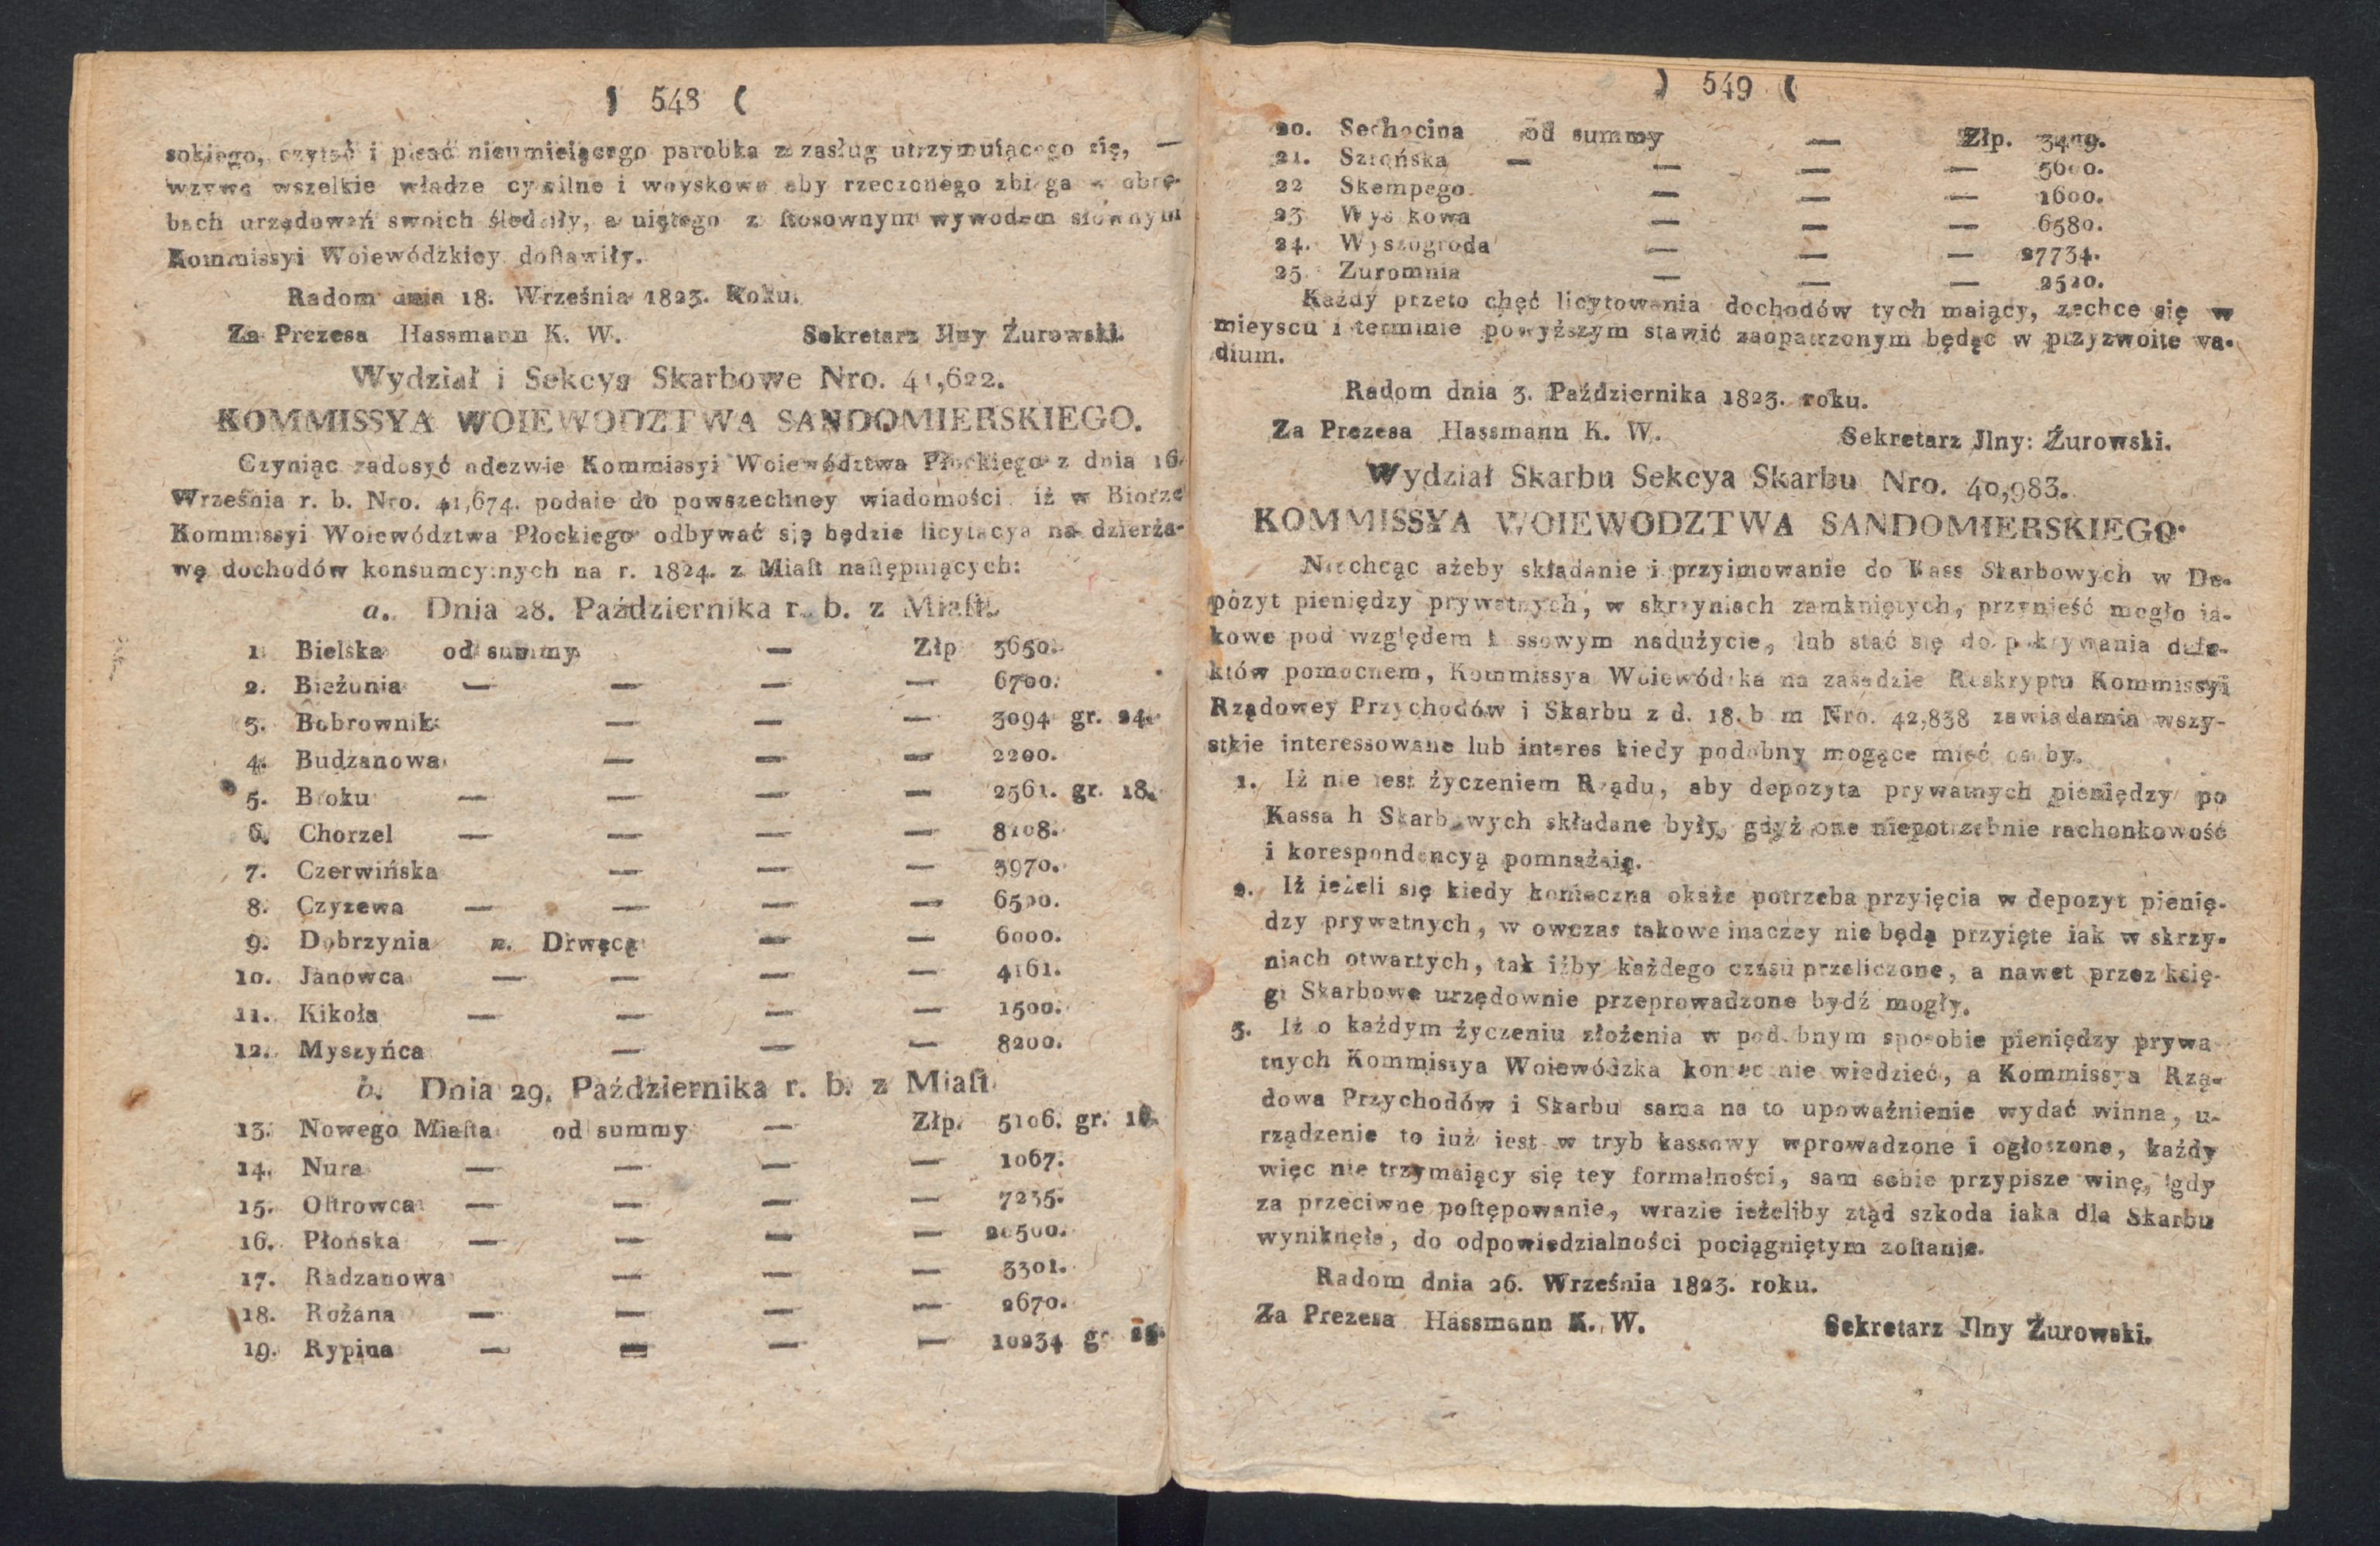 ) 548 (
sokiego, czytać i pisać nieumieiącego parobka z zasług utrzymuiącego się, —
wzywa wszelkie władze cywilne i woyskowe aby rzeczonego zbiega w obrę-
bach urzędowań swoich śledziły, a uiętego z ſtosownym wywodem słownym
Kommissyi Woiewódzkiey doſtawiły.
Radom dnia 18. Września 1823. Roku.
Za Prezesa Hassmann K. W. Sekretarz Jlny Żurowski.
Wydział i Sekcya Skarbowe Nro. 41,622.
KOMMISSYA WOIEWODZTWA SANDOMIERSKIEGO.
Czyniąc zadosyć odezwie Kommissyi Woiewództwa Płockiego z dnia 16
Września r. b. Nro. 41,674. podaie do powszechney wiadomości iż w Biorze
Kommissyi Woiewództwa Płockiego odbywać się będzie licytacya na dzierża-
wę dochodów konsumcyinych na r. 1824. z Miaſt naſtępuiących:
a. Dnia 28. Października r. b. z Miaſt.
1. Bielska od summy — Złp 3650.
2. Bieżunia — — — — 6700.
3. Bobrownik — — — 3094 gr. 24.
4. Budzanowa — — — 2200.
5. Broku — — — — 2561. gr. 18.
6. Chorzel — — — — 8108.
7. Czerwińska — — — 3970.
8. Czyzewa — — — — 6500.
9. Dobrzynia n. Drwęcą — — 6000.
10. Janowca — — — — 4161.
11. Kikoła — — — — 1500.
12. Myszyńca — — — 8200.
b. Dnia 29. Października r. b. z Miaſt
13. Nowego Miaſta od summy — Złp. 5106. gr.
14. Nura — — — — 1067.
15. Oſtrowca — — — — 7235.
16. Płońska — — — — 20500.
17. Radzanowa — — — 3301.
18. Rożana — — — — 2670.
19. Rypina — — — — 10234 gr
) 549 (
20. Sechocina od summy — Złp.
21. Szrońska — — — — 5600.
22 Skempego — — — 1600.
23 Wyskowa — — — 6580.
24. Wyszogroda — — — 27734.
25 Zuromnia — — — 2520.
Każdy przeto chęć licytowania dochodów tych maiący, zechce się w
mieyscu i terminie powyższym stawić zaopatrzonym będąc w przyzwoite va-
dium.
Radom dnia 3. Października 1823. roku.
Za Prezesa Hassmann K. W. Sekretarz Jlny: Żurowski.
Wydział Skarbu Sekcya Skarbu Nro. 40,983.
KOMMISSYA WOIEWODZTWA SANDOMIERSKIEGO.
Niechcąc ażeby składanie i przyimowanie do Kass Skarbowych w De-
pozyt pieniędzy prywatnych, w skrzyniach zamkniętych, przynieść mogło ia-
kowe pod względem kassowym nadużycie, lub stać się do pokrywania defe-
któw pomocnem, Kommissya Woiewódzka na zasadzie Reskryptu Kommissyi
Rządowey Przychodów i Skarbu z d. 18. b m Nro. 42,838 zawiadamia wszy-
stkie interessowane lub interes kiedy podobny mogące mieć osoby.
1. Iż nie iest życzeniem Rządu, aby depozyta prywatnych pieniędzy po
Kassach Skarbowych składane były, gdyż one niepotrzebnie rachonkowość
i korespondencyą pomnażaią.
2. Iż ieżeli się kiedy konieczna okaże potrzeba przyięcia w depozyt pienię-
dzy prywatnych, w owczas takowe inaczey nie będą przyięte iak w skrzy-
niach otwartych, tak iżby każdego czasu przeliczone, a nawet przez księ-
gi Skarbowe urzędownie przeprowadzone bydź mogły.
3. Iż o każdym życzeniu złożenia w podobnym sposobie pieniędzy prywa
tnych Kommissya Woiewódzka koniecznie wiedzieć, a Kommissya Rzą-
dowa Przychodów i Skarbu sama na to upoważnienie wydać winna, u-
rządzenie to iuż iest w tryb kassowy wprowadzone i ogłoszone, każdy
więc nie trzymaiący się tey formalności, sam sobie przypisze winę, gdy
za przeciwne poſtępowanie, wrazie ieżeliby ztąd szkoda iaka dla Skarbu
wyniknęła, do odpowiedzialności pociągniętym zoſtanie.
Radom dnia 26. Września 1823. roku.
Za Prezesa Hassmann K. W. Sekretarz Jlny Żurowski.